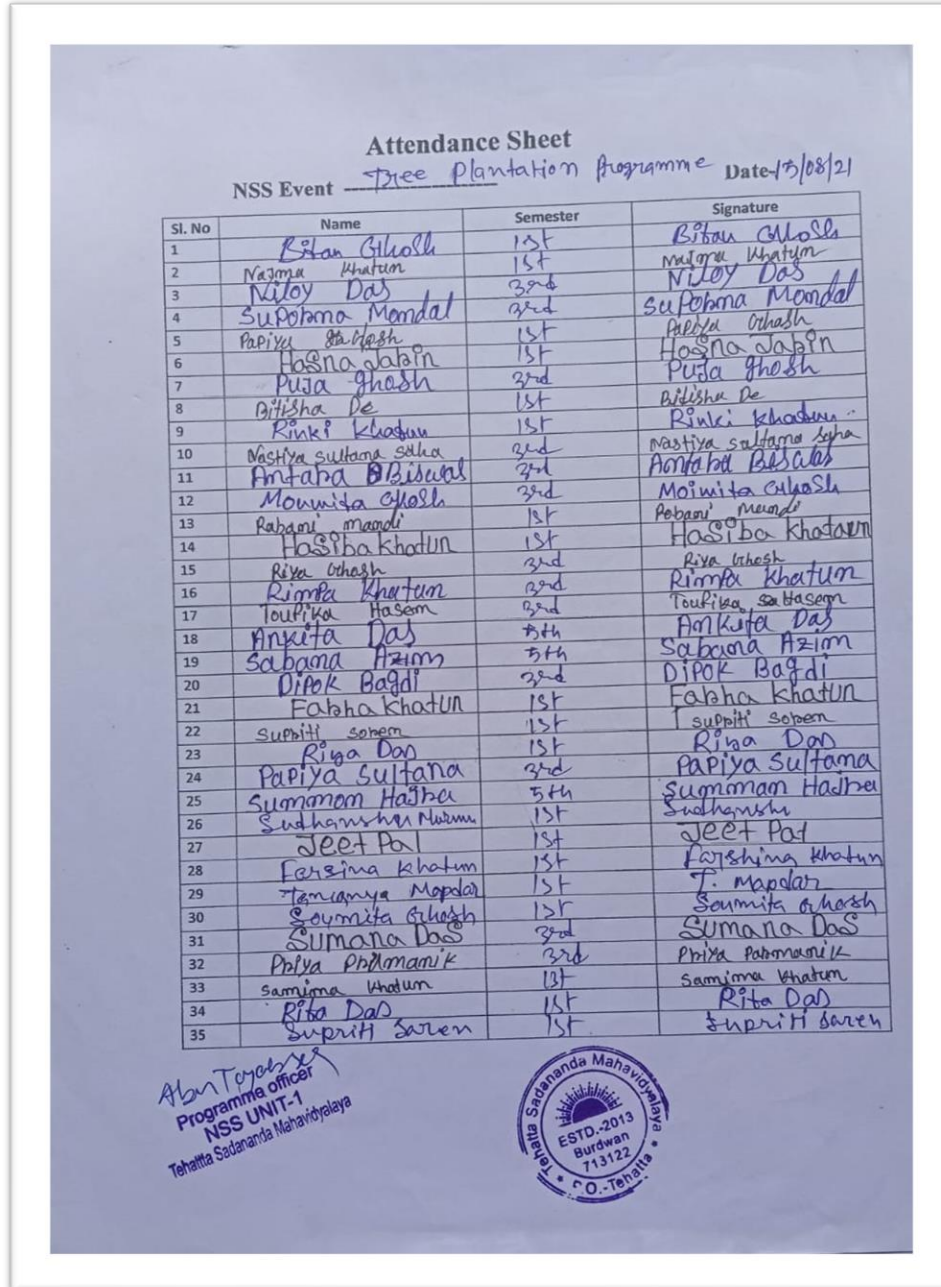 Attendance Sheet
NSS Event Tree Plantation Programme Date-13/08/21
Sl. No Name Semester Signature
1 Bitan Ghosh 1st Bitan Ghosh
2 Najma Khatun 1st Najma Khatun
3 Niloy Das 3rd Niloy Das
4 Suporna Mondal 3rd Suporna Mondal
5 Papiya Ghosh 1st Papiya Ghosh
6 Hasna Jabin 1st Hasna Jabin
7 Puja ghosh 3rd Puja ghosh
8 Bitisha De 1st Bitisha De
9 Rinki Khatun 1st Rinki Khatun
10 Nastiya sultana 3rd Nastiya sultana
11 Antara Biswas 3rd Antara Biswas
12 Moumita Ghosh 3rd Moimita Ghosh
13 Rabani mandi 1st Mandi
14 Hasiba Khatun 1st Hasiba Khataun
15 Riya Ghosh 3rd Riya Ghosh
16 Rimpa Khatun 3rd Rimpa Khatun
17 Toufika Hasem 3rd Toufika Hasem
18 Ankita Das 5th Ankita Das
19 Sabana Azim 5th Sabana Azim
20 Dipok Bagdi 3rd Dipok Bagdi
21 Farha Khatun 1st Farha Khatun
22 Supriti soren 1st supriti soren
23 Riya Das 1st Riya Das
24 Papiya Sultana 3rd Papiya Sultana
25 Summon Hajra 5th Summan Hajra
26 Sudhanshu Murmu 1st Sudhanshu
27 Jeet Pal 1st Jeet Pal
28 Farsina Khatun 1st Farshina Khatun
29 Mapdar 1st T. Mapdar
30 Soumita Ghosh 1st Soumita Ghosh
31 Sumana Das 3rd Sumana Das
32 Priya Prámanik 3rd Priya Parmanik
33 Samima Khatun 1st Samima Khatun
34 Rita Das 1st Rita Das
35 Supriti Saren 1st Supriti Saren
Programme officer
NSS UNIT-1
Tehatta Sadananda Mahavidyalaya
Tehatta Sadananda Mahavidyalaya
ESTD.-2013
Burdwan
713122
P.O.-Tehatta